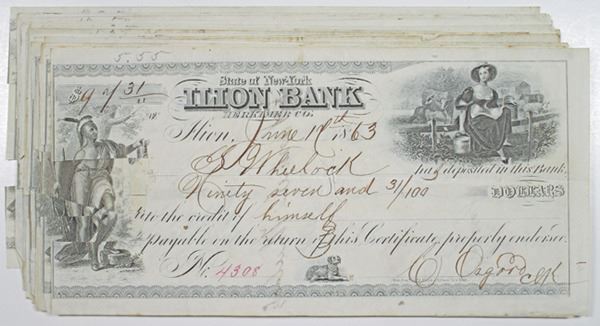 5.55
$97 31/100
State of New-York
ILION BANK
HERKIMER CO.
Ilion, June 1 th 1863
Wheelock
has deposited in this Bank,
Ninety seven and 31/100 DOLLARS
to the credit of himself
payable on the return of this Certificate, properly endorsed.
No. 4308
C Osgood Clk